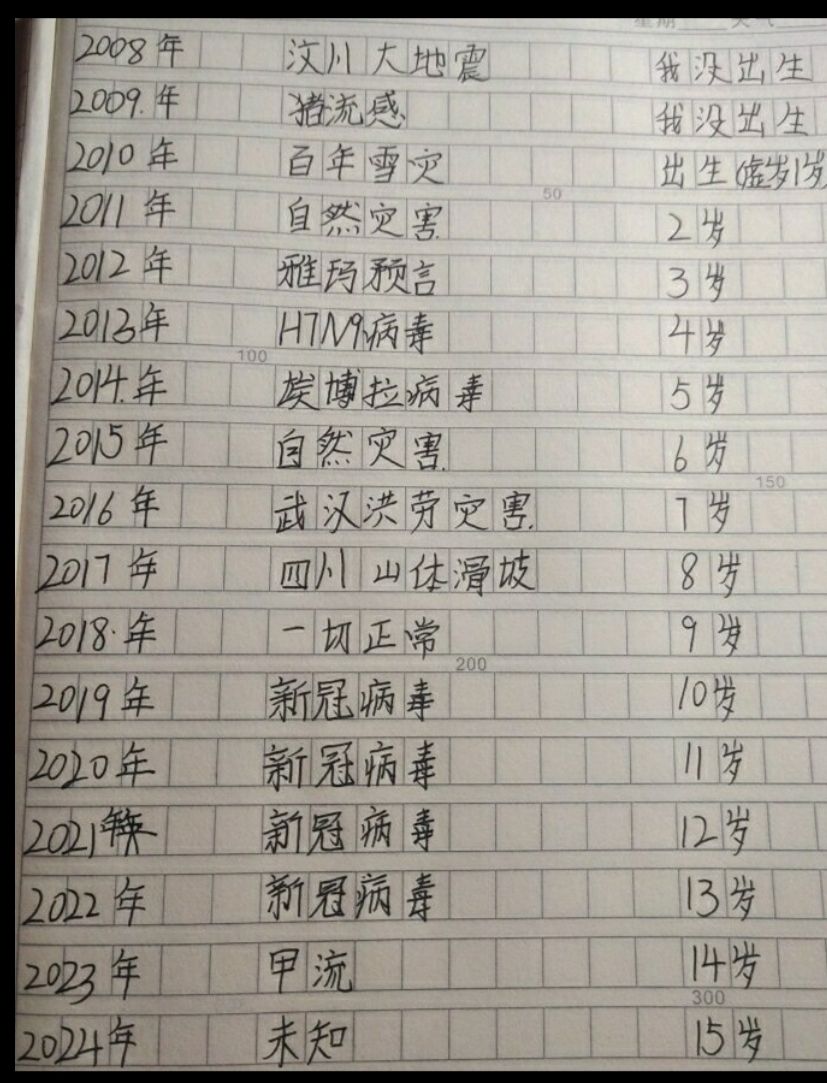 2008年 汶川大地震 我没出生
2009.年 猪流感 我没出生
2010年 百年雪灾 出生(虚岁1岁)
50
2011年 自然灾害 2岁
2012年 雅玛预言 3岁
2013年 H7N9病毒 4岁
100
2014.年 埃博拉病毒 5岁
2015年 自然灾害. 6岁
150
2016年 武汉洪劳灾害. 7岁
2017年 四川山体滑坡 8岁
2018.年 一切正常 9岁
200
2019年 新冠病毒 10岁
2020年 新冠病毒 11岁
2021年 新冠病毒 12岁
2022年 新冠病毒 13岁
2023年 甲流 14岁
300
2024年 未知 15岁